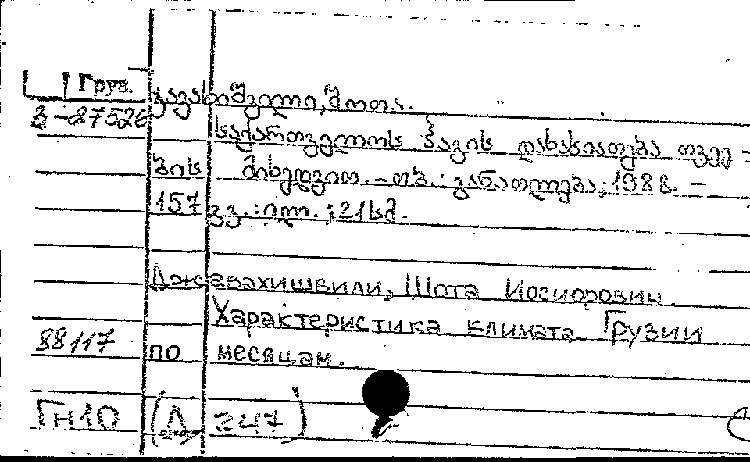 Груз.
ჯავახიშვილი, შოთა.
3-87526
საქართველოს ჰავის დახასიათება თვეე-
ბის მიხედვით. - თბ.: განათლება, 1988. -
157 გვ.: ილ.; 21სმ.
Джавахишвили, Шота Иосифович.
Характеристика климата Грузии
88117
по месяцам.
ГН10 (Д 247)